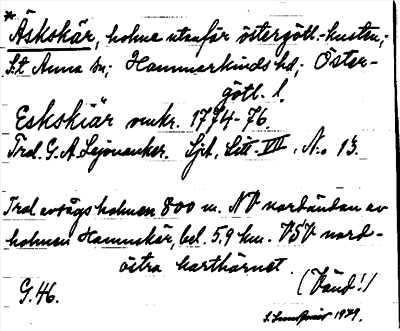 * Äskskär, holme utanför östergöt.-kusten;
S:t Anna sn; Hammarkinds hd; Öster-
götl. l.
Eskskiär omkr. 1774-76.
Trol. G. A. Lejonanker. Sjk. Litt. VIII. No 13.
Trol. avsågs holmen 800 m. NV nordändan av
holmen Hamnskär, bel. 5,9 km. VSV nord-
östra karthörnet.
(Vänd!)
G. 46.
1929.